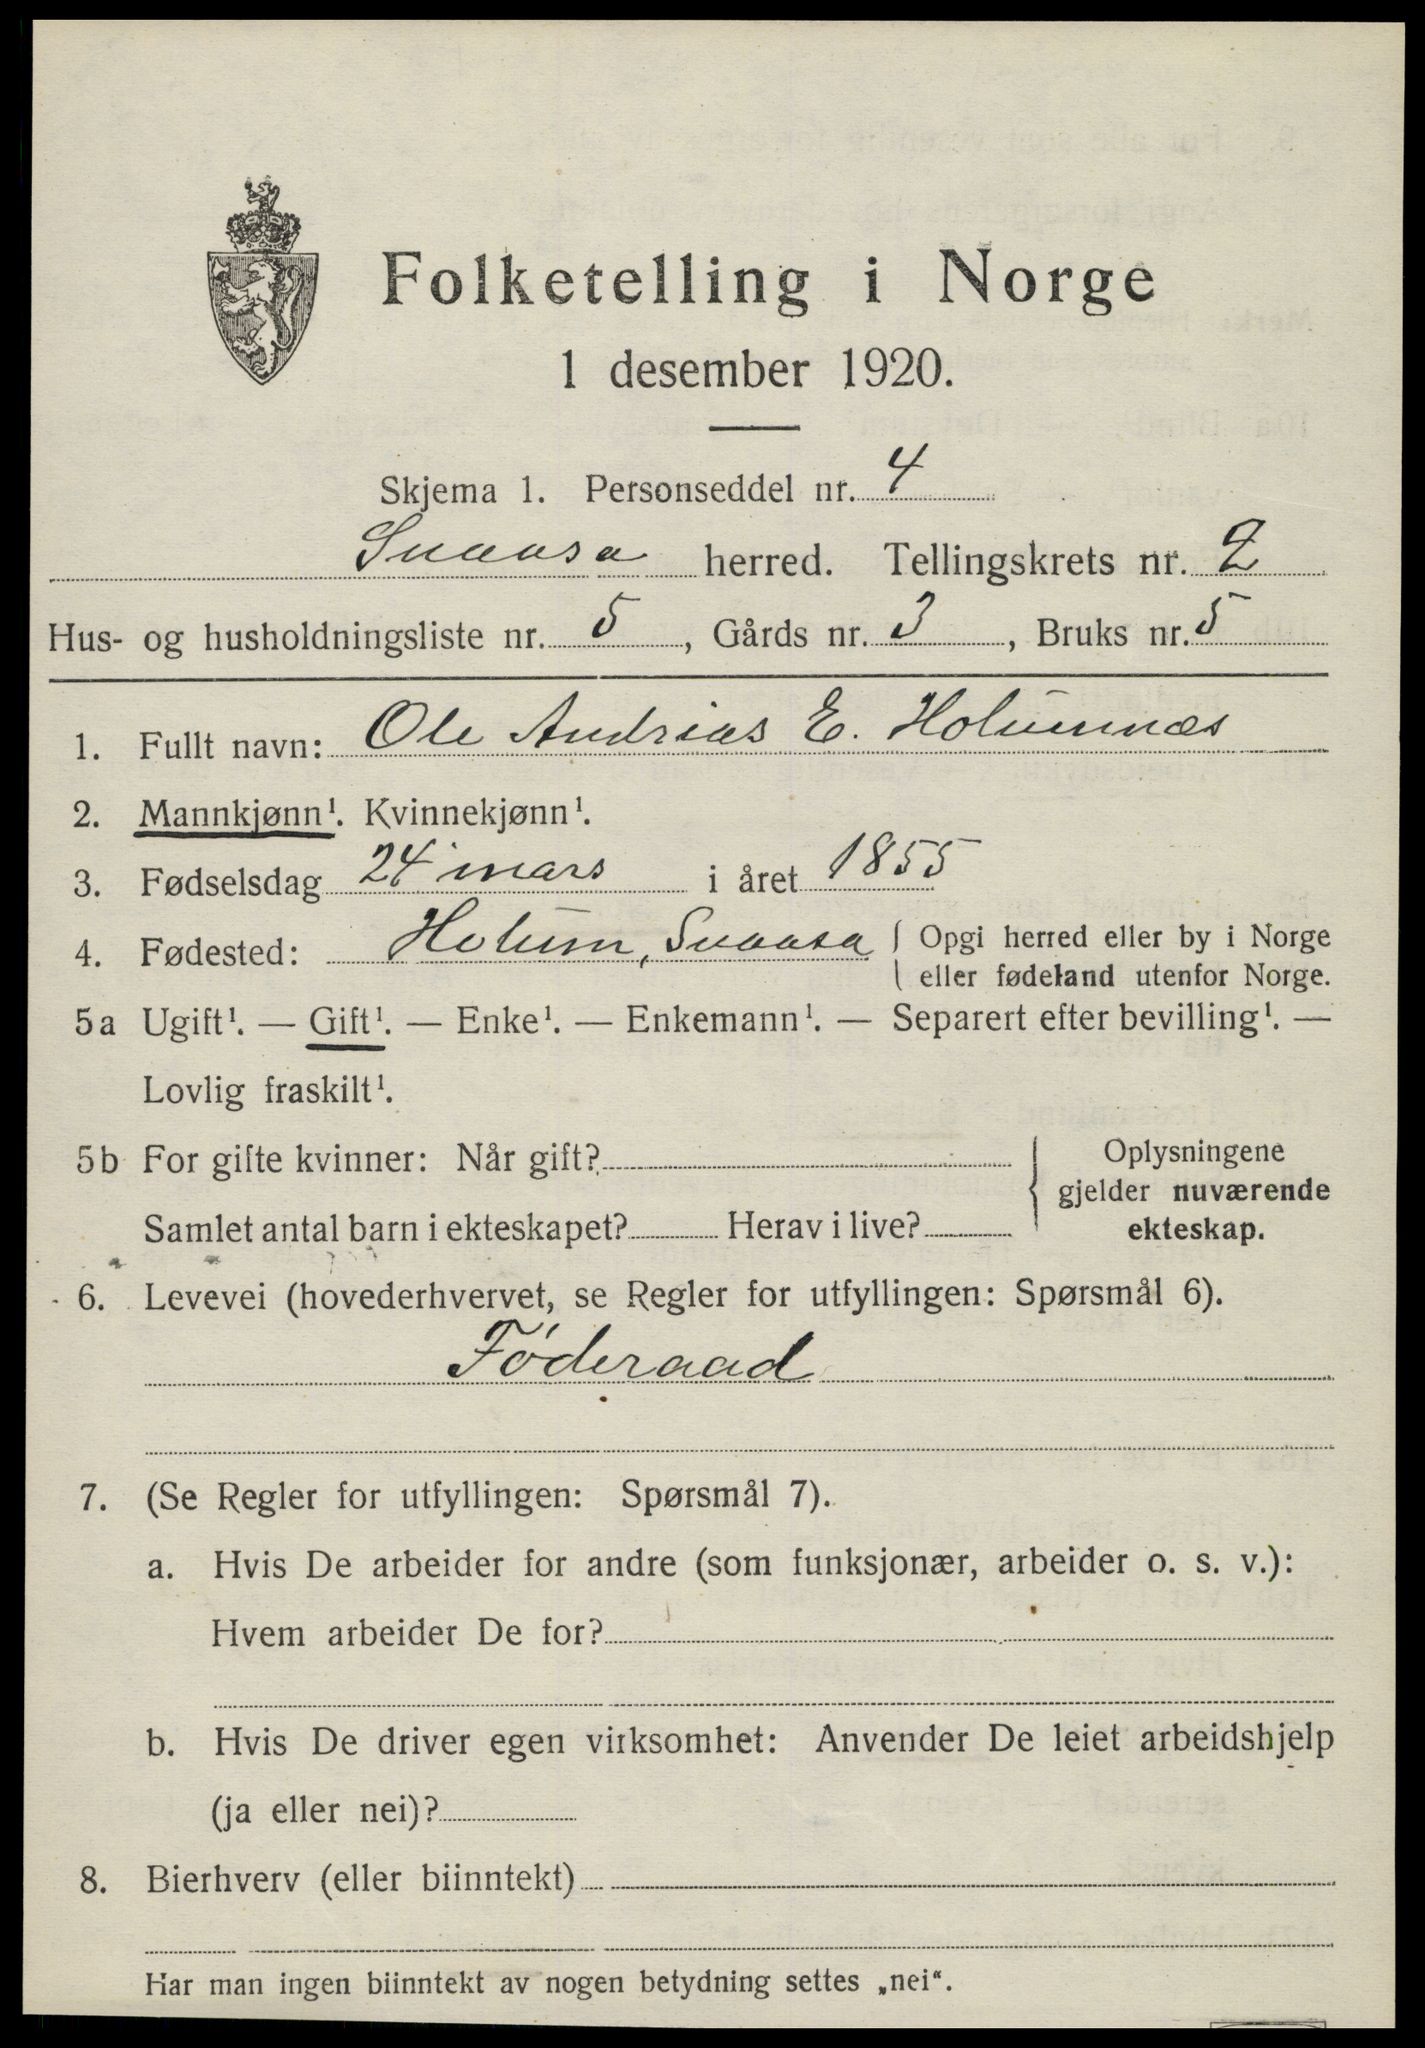 Folketelling i Norge
1 desember 1920.
Skjema 1. Personseddel nr. 4
Snaasa herred. Tellingskrets nr. 2
Hus- og husholdningsliste nr. 5, Gårds nr. 3, Bruks nr. 5
1. Fullt navn: Ole Andrias E. Holumnæs
2. Mannkjønn¹. Kvinnekjønn¹.
3. Fødselsdag 24 mars i året 1855
4. Fødested: Holum, Snaasa { Opgi herred eller by i Norge
eller fødeland utenfor Norge.
5a Ugift¹. — Gift¹. — Enke¹. — Enkemann¹. — Separert efter bevilling¹. —
Lovlig fraskilt¹.
5b For gifte kvinner: Når gift?
Samlet antal barn i ekteskapet? Herav i live?
{ Oplysningene
gjelder nuværende
ekteskap.
6. Levevei (hovederhvervet, se Regler for utfyllingen: Spørsmål 6).
Føderaad
7. (Se Regler for utfyllingen: Spørsmål 7).
a. Hvis De arbeider for andre (som funksjonær, arbeider o. s. v.):
Hvem arbeider De for?
b. Hvis De driver egen virksomhet: Anvender De leiet arbeidshjelp
(ja eller nei)?
8. Bierhverv (eller biinntekt)
Har man ingen biinntekt av nogen betydning settes „nei“.